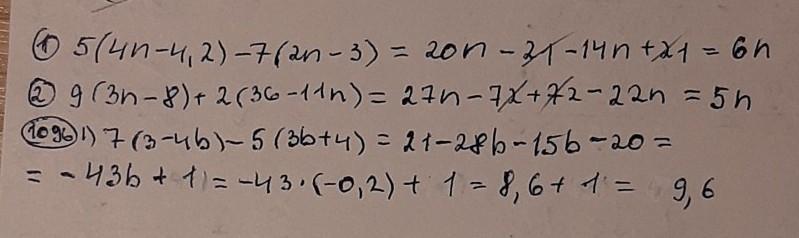 ① 5(4n-4,2)-7(2n-3) = 20n-21-14n+21 = 6n
② 9(3n-8)+2(36-11n) = 27n-72+72-22n = 5n
1096 1) 7(3-4b)-5(3b+4) = 21-28b-15b-20 =
= -43b+1 = -43·(-0,2)+1 = 8,6+1 = 9,6